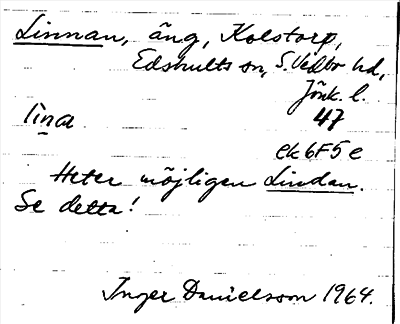 Linnan, äng, Kolstorp,
Edshults sn, S. Vedbo hd,
Jönk. l.
lina 47
ek 6F5e
Heter möjligen Lindan.
Se detta!
Inger Danielsson 1964.